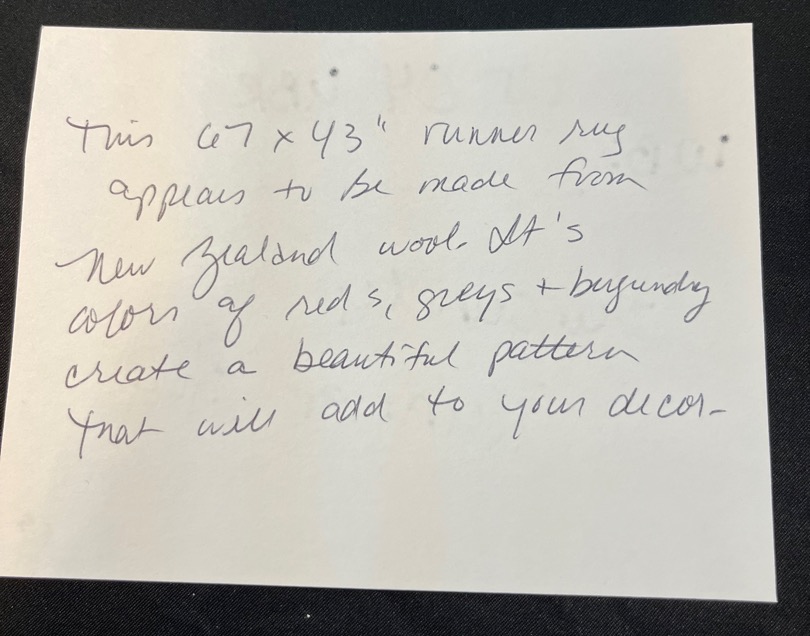 This 67 x 43" runner rug
appears to be made from
New Zealand wool. It's
colors of reds, greys + burgundy
create a beautiful pattern
that will add to your decor.